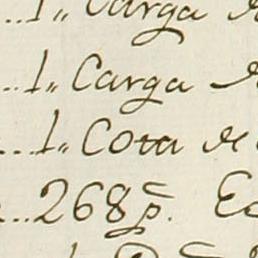 1,, Carga
..1,, Carga
...1,, Cota de
...268 p.